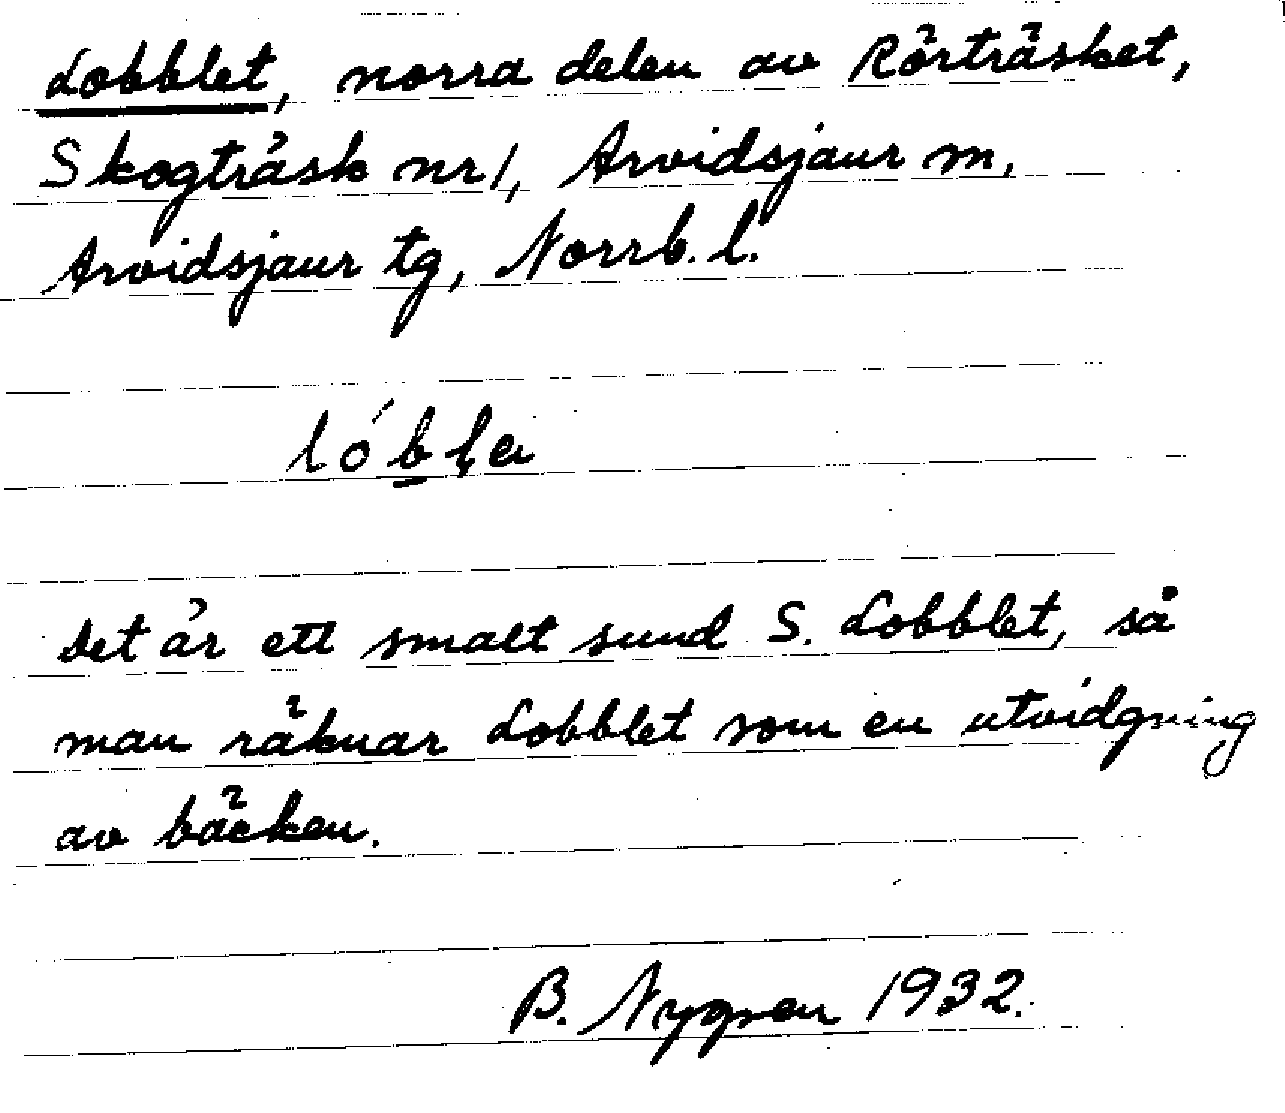 Lobblet, norra delen av Rörträsket,
Skogträsk nr 1, Arvidsjaur sn,
Arvidsjaur tg, Norrb. l.
lóbḷa
Det är ett smalt sund S. Lobblet, så
man räknar Lobblet som en utvidgning
av bäcken.
B. Nygren 1932.